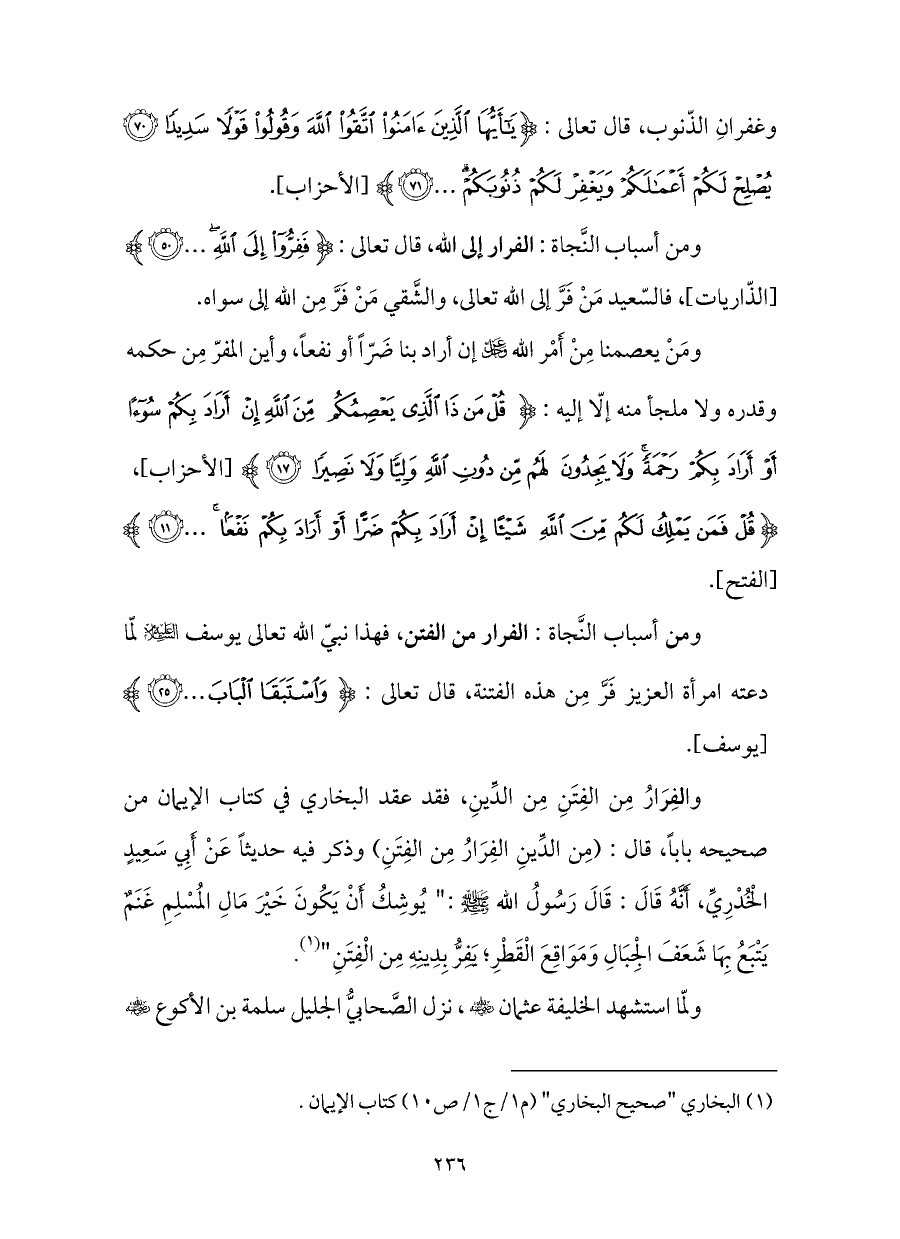 وغفرانِ الذّنوب، قال تعالى : ﴿ يَٰٓأَيُّهَا ٱلَّذِينَ ءَامَنُوا۟ ٱتَّقُوا۟ ٱللَّهَ وَقُولُوا۟ قَوْلًا سَدِيدًا ٧٠
يُصْلِحْ لَكُمْ أَعْمَٰلَكُمْ وَيَغْفِرْ لَكُمْ ذُنُوبَكُمْ ۗ ... ٧١ ﴾ [الأحزاب].
ومن أسباب النَّجاة : الفرار إلى الله، قال تعالى : ﴿ فَفِرُّوٓا۟ إِلَى ٱللَّهِ ۖ ... ٥٠ ﴾
[الذّاريات]، فالسّعيد مَنْ فَرَّ إلى الله تعالى، والشَّقي مَنْ فَرَّ مِن الله إلى سواه.
ومَنْ يعصمنا مِنْ أَمْر الله عز وجل إن أراد بنا ضَرّاً أو نفعاً، وأين المفرّ مِن حكمه
وقدره ولا ملجأ منه إلّا إليه : ﴿ قُلْ مَن ذَا ٱلَّذِى يَعْصِمُكُم مِّنَ ٱللَّهِ إِنْ أَرَادَ بِكُمْ سُوٓءًا
أَوْ أَرَادَ بِكُمْ رَحْمَةً ۚ وَلَا يَجِدُونَ لَهُم مِّن دُونِ ٱللَّهِ وَلِيًّا وَلَا نَصِيرًا ١٧ ﴾ [الأحزاب]،
﴿ قُلْ فَمَن يَمْلِكُ لَكُم مِّنَ ٱللَّهِ شَيْـًٔا إِنْ أَرَادَ بِكُمْ ضَرًّا أَوْ أَرَادَ بِكُمْ نَفْعًۢا ۚ ... ١١ ﴾
[الفتح].
ومن أسباب النَّجاة : الفرار من الفتن، فهذا نبيّ الله تعالى يوسف عليه السلام لمّا
دعته امرأة العزيز فَرَّ مِن هذه الفتنة، قال تعالى : ﴿ وَٱسْتَبَقَا ٱلْبَابَ... ٢٥ ﴾
[يوسف].
والفِرَارُ مِن الفِتَنِ مِن الدِّينِ، فقد عقد البخاري في كتاب الإيمان من
صحيحه باباً، قال : (مِن الدِّينِ الفِرَارُ مِن الفِتَنِ) وذكر فيه حديثاً عَنْ أَبِي سَعِيدٍ
الْخُدْرِيِّ، أَنَّهُ قَالَ : قَالَ رَسُولُ الله ﷺ :" يُوشِكُ أَنْ يَكُونَ خَيْرَ مَالِ الْمُسْلِمِ غَنَمٌ
يَتْبَعُ بِهَا شَعَفَ الْجِبَالِ وَمَوَاقِعَ الْقَطْرِ؛ يَفِرُّ بِدِينِهِ مِن الْفِتَنِ"(١).
ولمّا استشهد الخليفة عثمان رضي الله عنه ، نزل الصَّحابيُّ الجليل سلمة بن الأكوع رضي الله عنه
(١) البخاري "صحيح البخاري" (م١/ ج١/ ص١٠) كتاب الإيمان .
٢٣٦